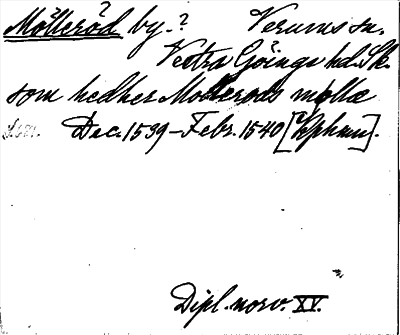 Mölleröd by.? Verums sn.
Vestra Göinge hd. Sk.
som hedher Mollerods mollæ
Dec. 1539–Febr. 1540 [Kphmn].
Dipl. norv. XV.